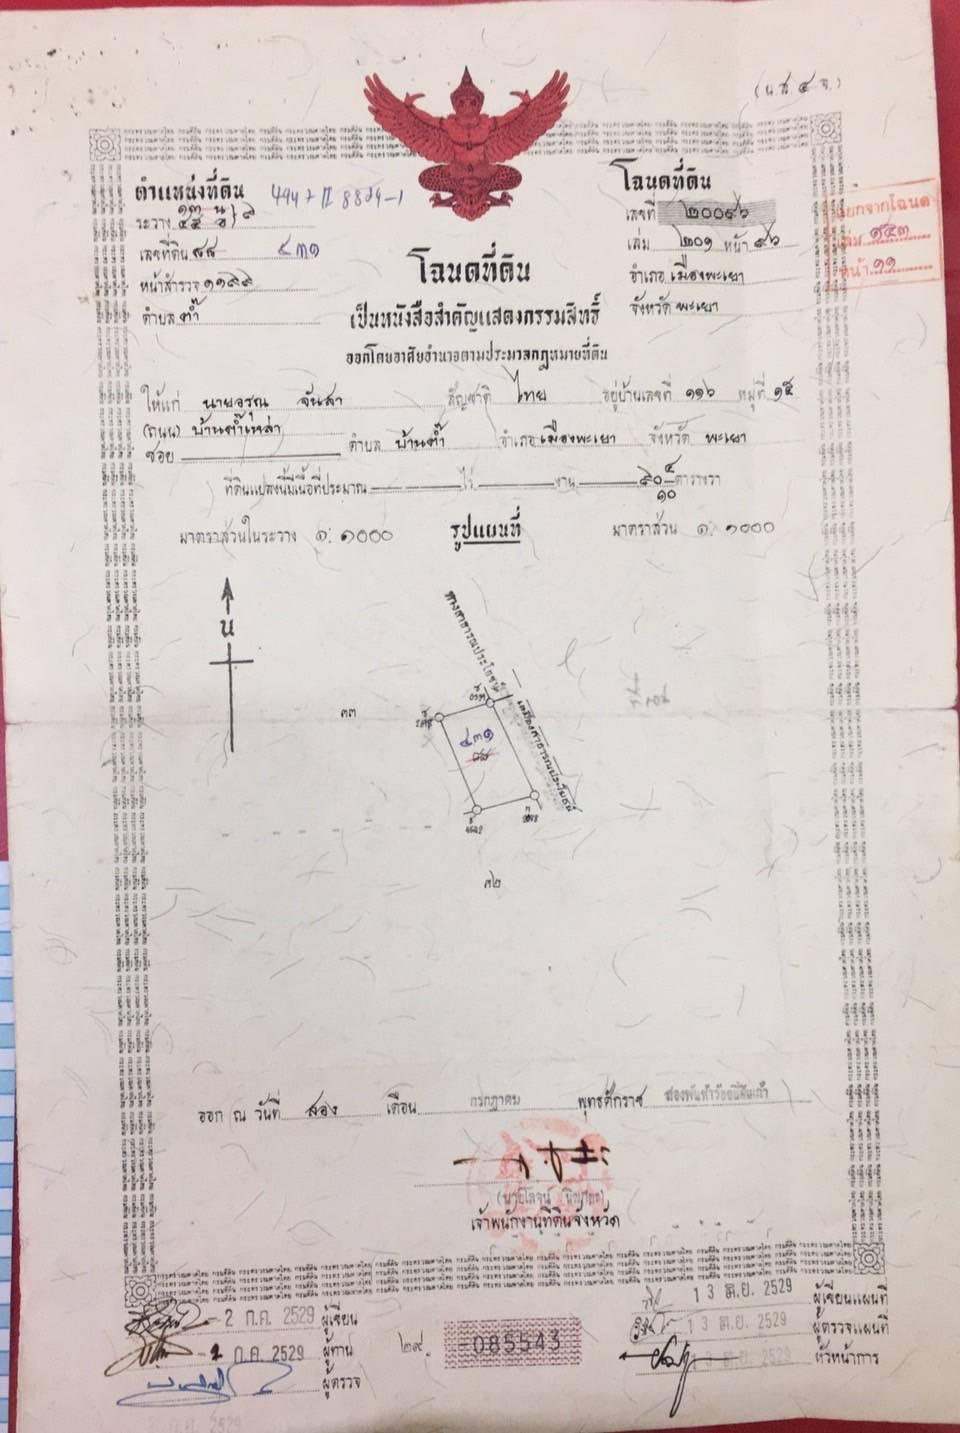 (น.ส. ๔ จ.)
ตำแหน่งที่ดิน
โฉนดที่ดิน
ระวาง
เลขที่ ๒๐๐๙๖
เลขที่ดิน ๘๘ ๔๓๑
เล่ม ๒๐๑ หน้า ๙๖
แยกจากโฉนด
เล่ม ๑๔๓
หน้า ๑๑
หน้าสำรวจ ๑๑๙๙
อำเภอ เมืองพะเยา
ตำบล ต๊ำ
จังหวัด พะเยา
โฉนดที่ดิน
เป็นหนังสือสำคัญแสดงกรรมสิทธิ์
ออกโดยอาศัยอำนาจตามประมวลกฎหมายที่ดิน
ให้แก่ นายอรุณ จันสา สัญชาติ ไทย อยู่บ้านเลขที่ ๑๑๖ หมู่ที่ ๑๕
(ถนน) บ้านต๊ำเหล่า
ซอย ตำบล บ้านต๊ำ อำเภอ เมืองพะเยา จังหวัด พะเยา
ที่ดินแปลงนี้มีเนื้อที่ประมาณ ไร่ งาน ๙๐ ๔/๑๐ ตารางวา
มาตราส่วนในระวาง ๑: ๑๐๐๐ รูปแผนที่ มาตราส่วน ๑: ๑๐๐๐
น
ทางสาธารณประโยชน์
เหมืองสาธารณประโยชน์
๓๓
๔๓๑
๘๘
๓๒
ออก ณ วันที่ สอง เดือน กรกฎาคม พุทธศักราช สองพันห้าร้อยยี่สิบเก้า
เจ้าพนักงานที่ดินจังหวัด
2 ก.ค. 2529 ผู้เขียน
2 ก.ค. 2529 ผู้ทาน
ผู้ตรวจ
๒๙. 085543
13 มิ.ย. 2529 ผู้เขียนแผนที่
13 มิ.ย. 2529 ผู้ตรวจแผนที่
13 มิ.ย. 2529 หัวหน้าการ